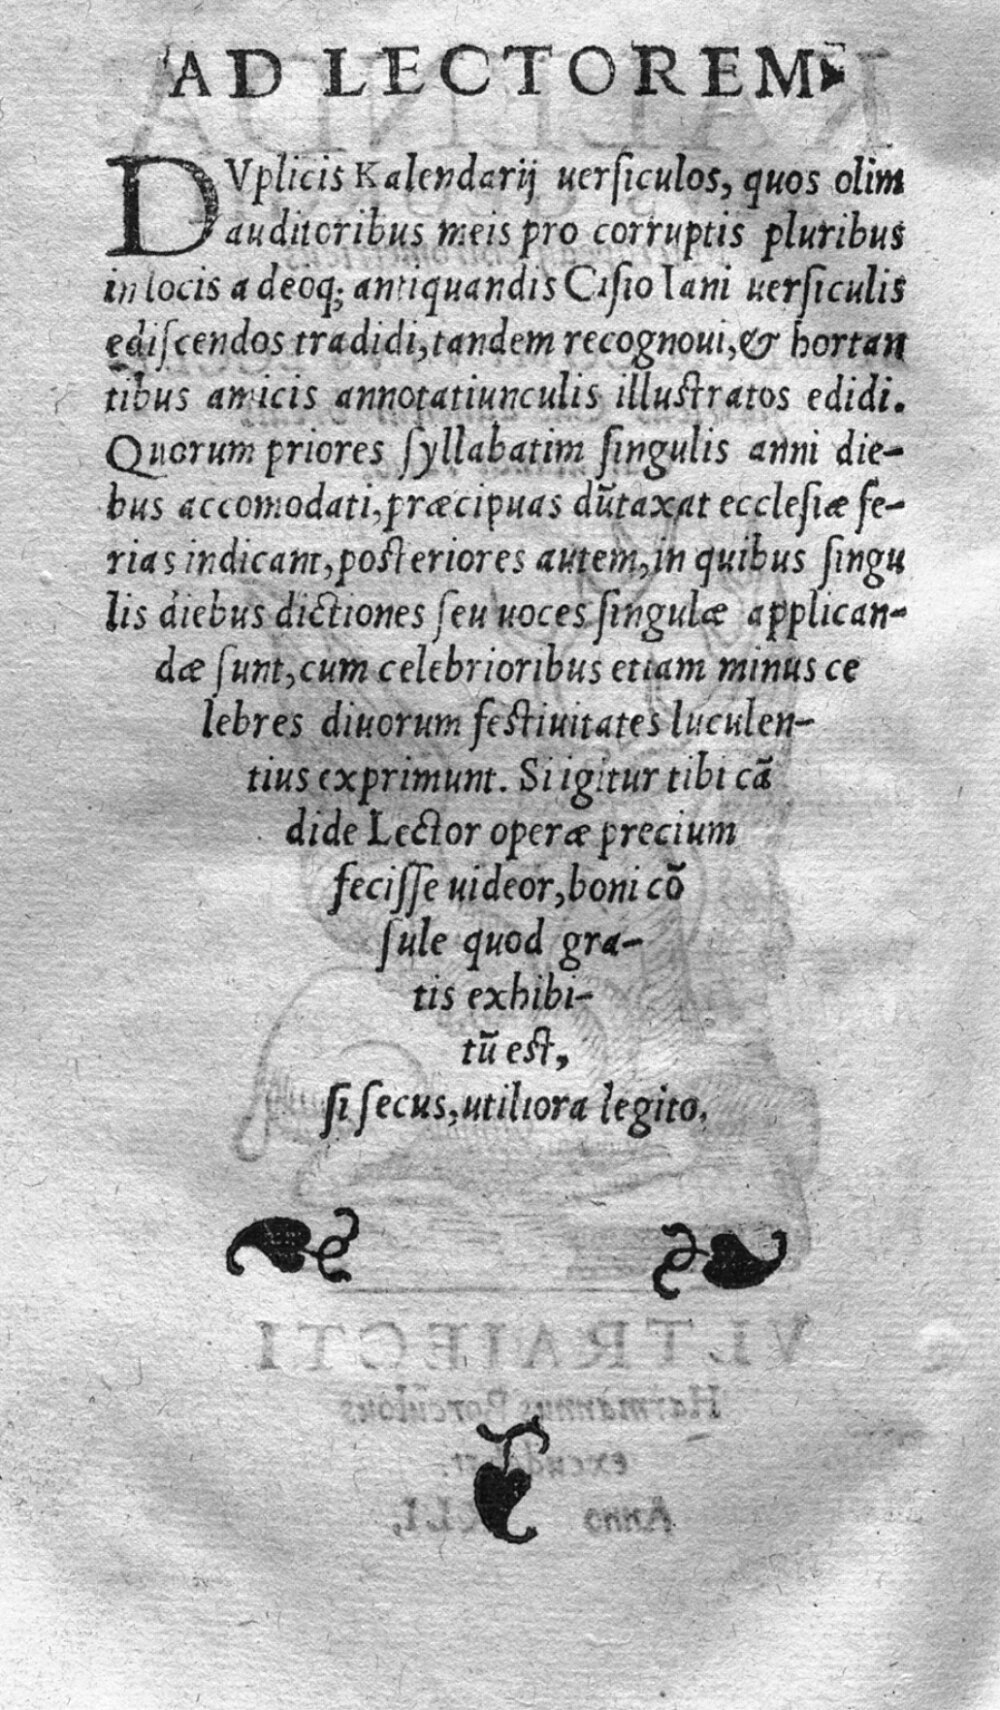 AD LECTOREM
DVplicis Kalendarij uerſiculos, quos olim
auditoribus meis pro corruptis pluribus
in locis adeoq; antiquandis Ciſio Iani uerſiculis
ediſcendos tradidi, tandem recognoui, & hortan
tibus amicis annotatiunculis illuſtratos edidi.
Quorum priores ſyllabatim ſingulis anni die-
bus accomodati, præcipuas dūtaxat eccleſiæ fe-
rias indicant, poſteriores autem, in quibus ſingu
lis diebus dictiones ſeu uoces ſingulæ applican-
dæ ſunt, cum celebrioribus etiam minus ce
lebres diuorum feſtiuitates luculen-
tius exprimunt. Si igitur tibi cā
dide Lector operæ precium
feciſſe uideor, boni cō
ſule quod gra-
tis exhibi-
tū eſt,
ſi ſecus, utiliora legito.
VLTRAIECTI
Harmannus Borculous
excud
Anno